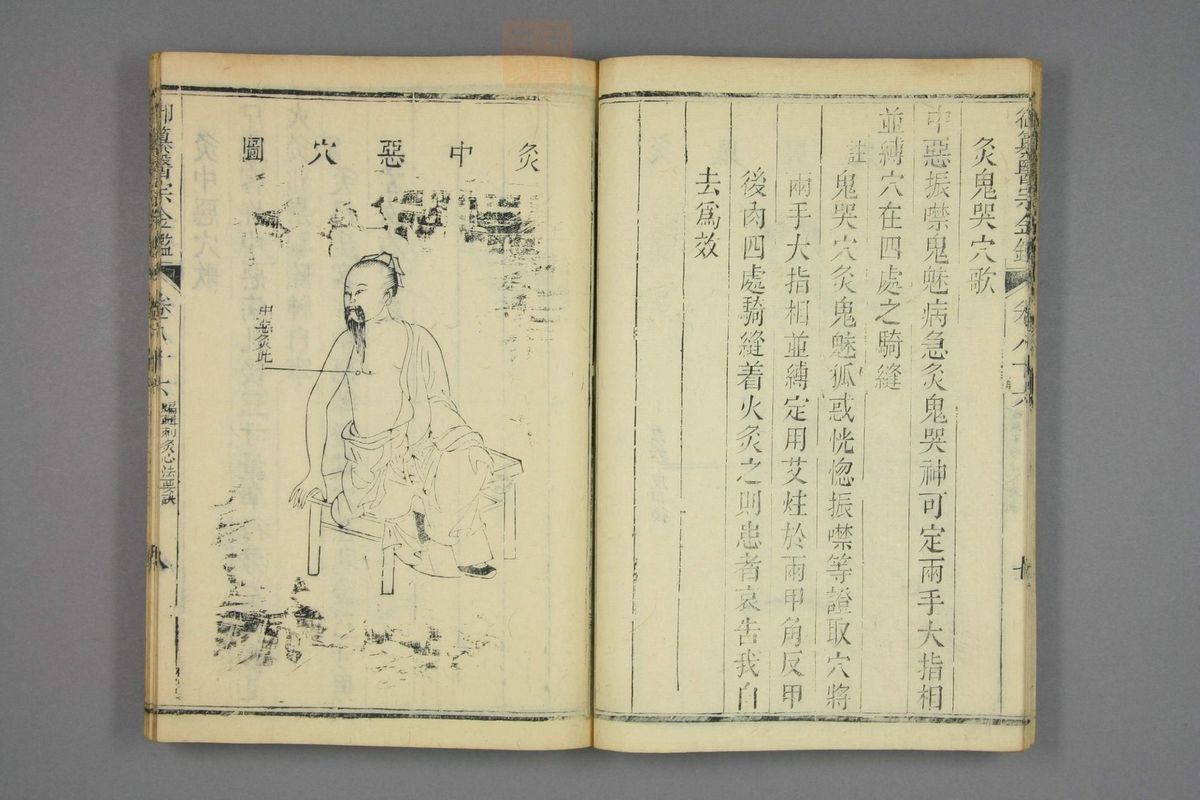 灸鬼哭穴歌
中惡振噤鬼魅病急灸鬼哭神可定兩手大指相
並縛穴在四處之騎縫
註
鬼哭穴灸鬼魅狐惑恍惚振噤等證取穴將
兩手大指相並縛定用艾炷於兩甲角反甲
後肉四處騎縫着火灸之則患者哀告我自
去爲效
灸中惡穴圖
中惡灸此
御纂醫宗金鑑
卷八十六
編輯刺灸心法要訣